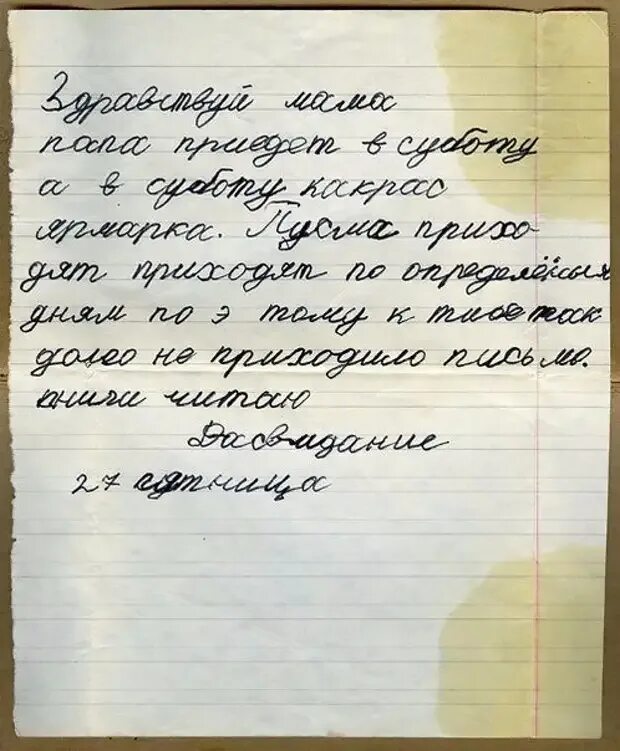 Здравствуй мама
папа приедет в суботу
а в суботу какрас
ярмарка. Писма прихо-
дят приходят по определёным
дням по э тому к тибе так
долго не приходило письмо.
книги читаю
Дасвидание
27 пятница